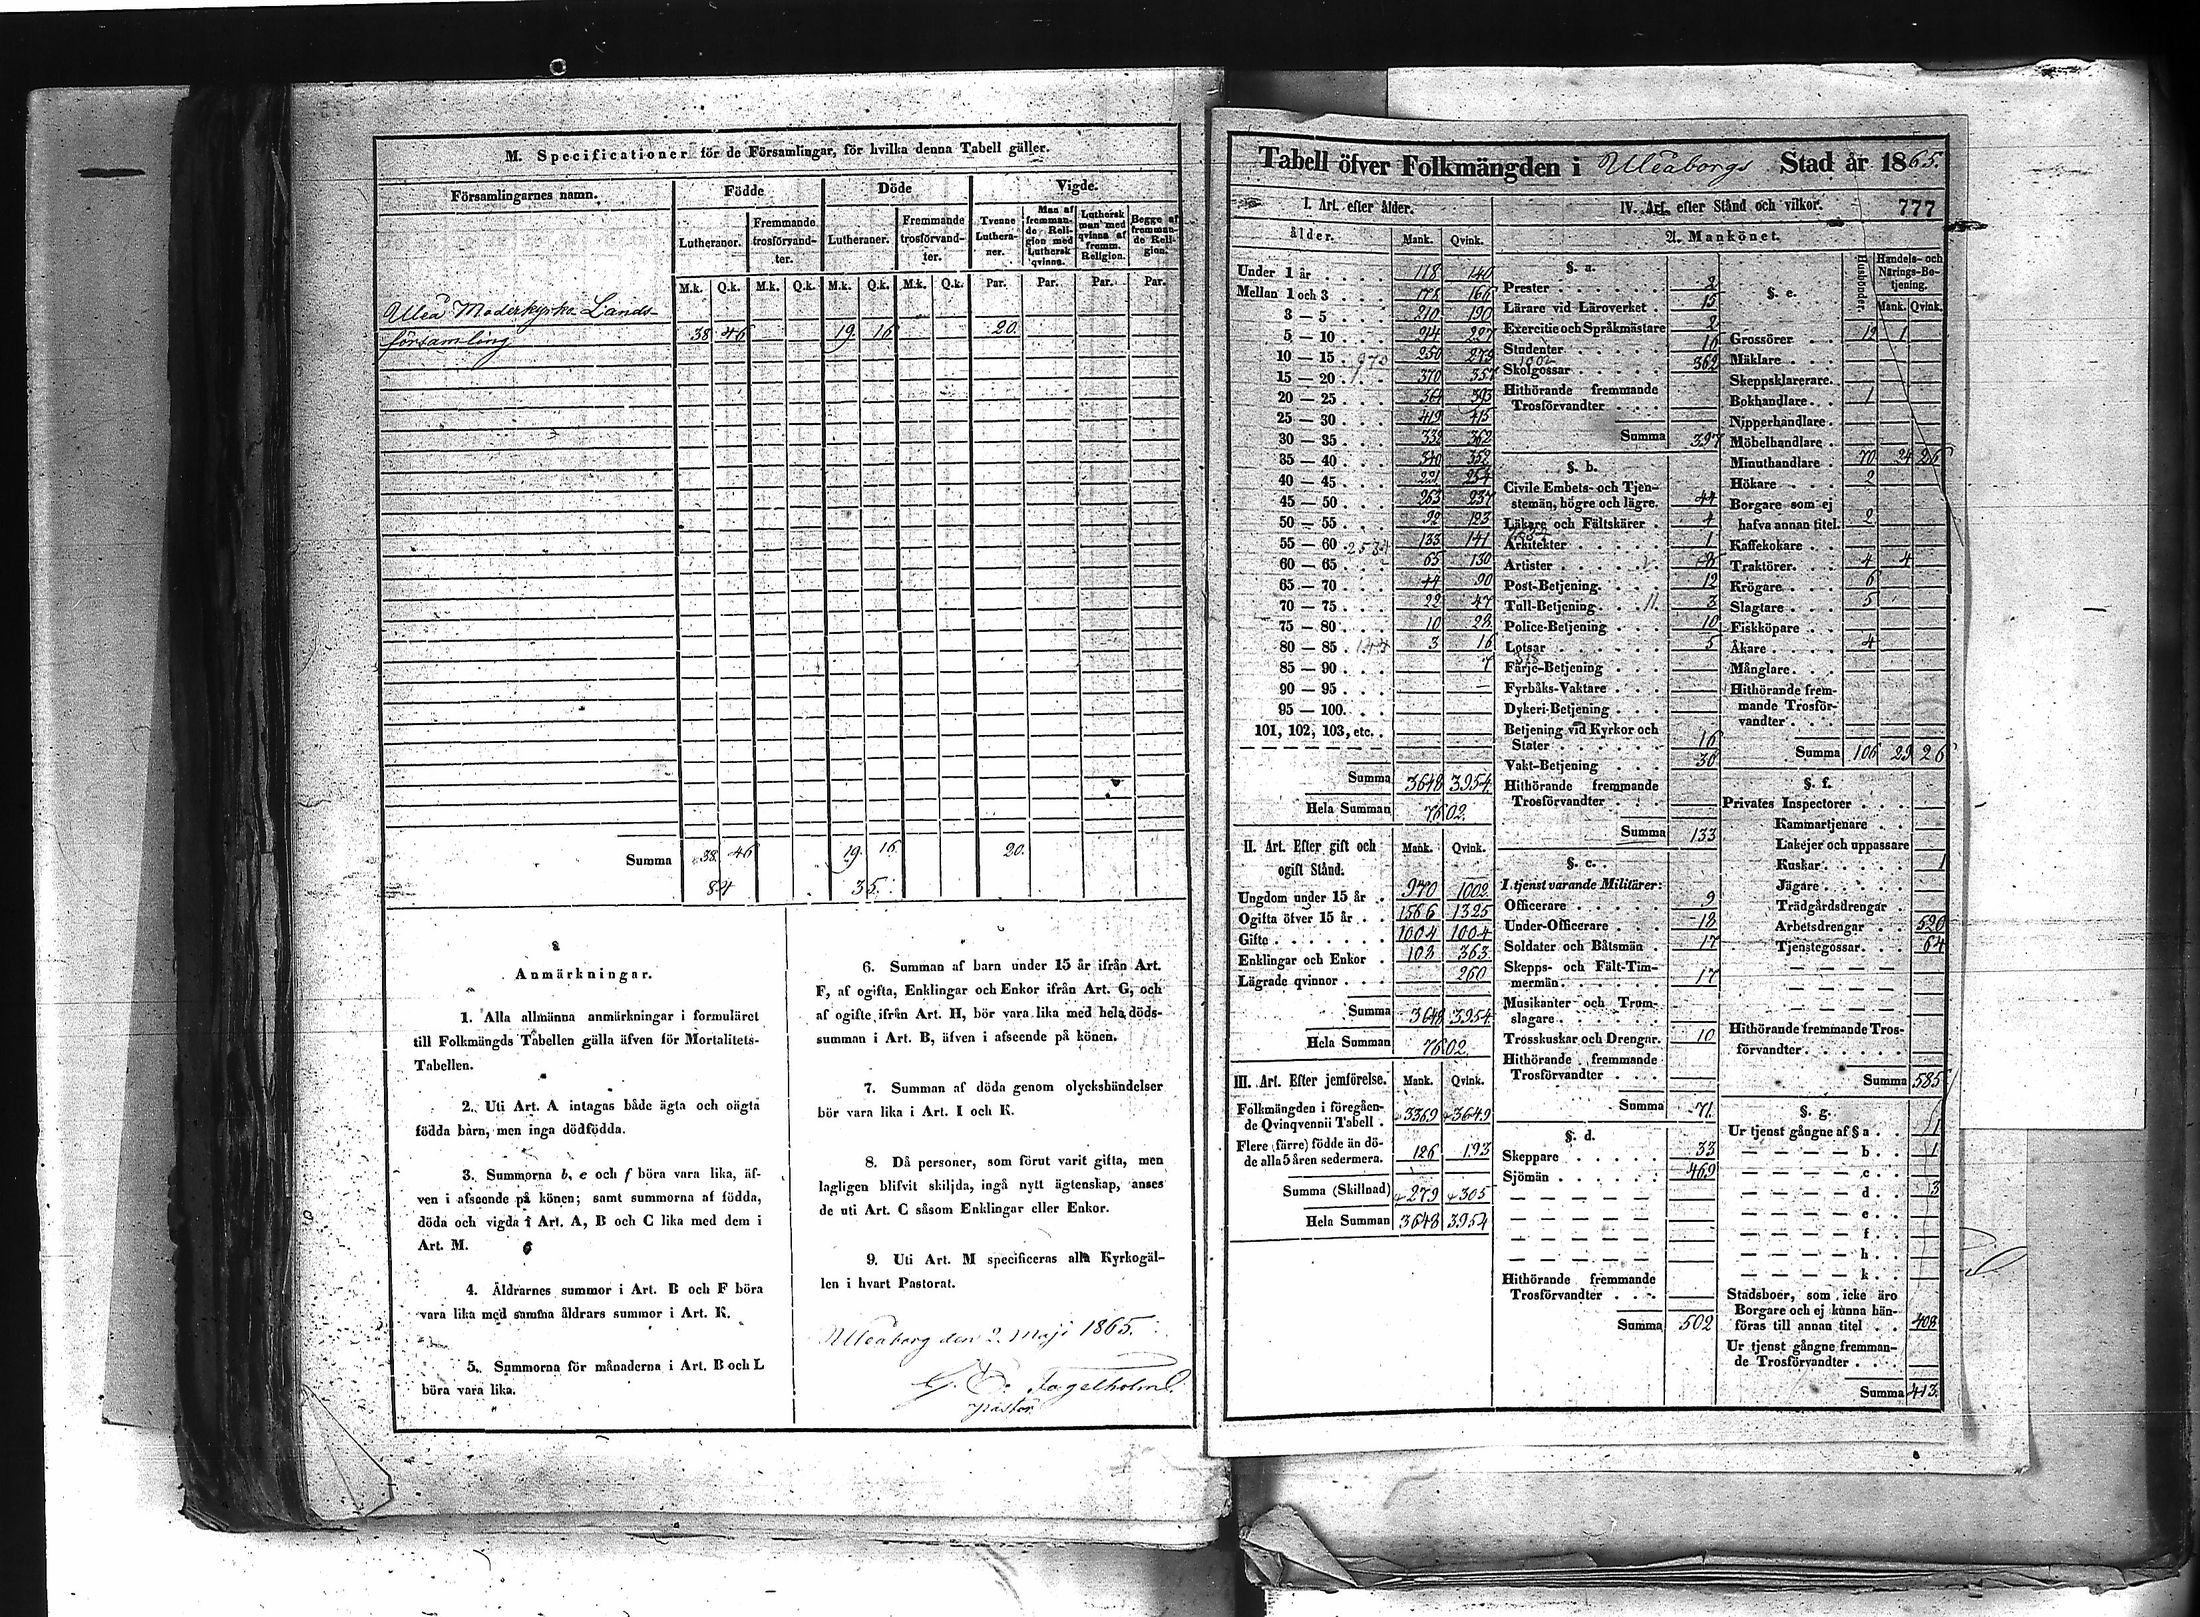 M. Specificationer för de Församlingar, för hvilka denna Tabell gäller.
Församlingarnes namn.
Födde
Döde
Vigde.
Lutheraner. Fremmande trosförvandter. Lutheraner. Fremmande trosförvandter. Tvenne Lutheraner. Man af fremmande Religion med Luthersk qvinna. Luthersk man med qvinna af fremm. Religion. Begge af fremmande Religion.
M.k. Q.k. M.k. Q.k. M.k. Q.k. M.k. Q.k. Par. Par. Par. Par.
Uleå Moderkyrko Lands-
församling 38 46 19 16 20.
Summa 38 46 19. 16 20.
84 35.
Anmärkningar.
1. Alla allmänna anmärkningar i formuläret
till Folkmängds Tabellen gälla äfven för Mortalitets-
Tabellen.
2. Uti Art. A intagas både ägta och oägta
födda barn, men inga dödfödda.
3. Summorna b, e och f böra vara lika, äf-
ven i afseende på könen; samt summorna af födda,
döda och vigda i Art. A, B och C lika med dem i
Art. M.
4. Åldrarnes summor i Art. B och F böra
vara lika med samma åldrars summor i Art. K.
5. Summorna för månaderna i Art. B och L
böra vara lika.
6. Summan af barn under 15 år ifrån Art.
F, af ogifta, Enklingar och Enkor ifrån Art. G, och
af ogifte ifrån Art. H, bör vara lika med hela döds-
summan i Art. B, äfven i afseende på könen.
7. Summan af döda genom olyckshändelser
bör vara lika i Art. I och K.
8. Då personer, som förut varit gifta, men
lagligen blifvit skiljda, ingå nytt ägtenskap, anses
de uti Art. C såsom Enklingar eller Enkor.
9. Uti Art. M specificeras alla Kyrkogäl-
len i hvart Pastorat.
Uleåborg den 2. Maji 1865.
Fagelholm
pastor
Tabell öfver Folkmängden i Uleåborgs Stad år 1865.
777
I. Art. efter ålder.
ålder. Mank. Qvink.
Under 1 år 118 140
Mellan 1 och 3 178 166
3 — 5 210 190
5 — 10 214 227
10 — 15 970 250 279 1002
15 — 20 370 357
20 — 25 364 393
25 — 30 419 415
30 — 35 338 362
35 — 40 340 352
40 — 45 221 254
45 — 50 263 237
50 — 55 92 123
55 — 60 133 141
60 — 65 65 130
65 — 70 44 90
70 — 75 22 47
75 — 80 10 28
80 — 85 3 16
85 — 90 7
90 — 95
95 — 100.
101, 102, 103, etc.
Summa 3648 3954
Hela Summan 7602.
II. Art. Efter gift och ogift Stånd. Mank. Qvink.
Ungdom under 15 år 970 1002
Ogifta öfver 15 år 1566 1325
Gifte 1004 1004
Enklingar och Enkor 103 363
Lägrade qvinnor 260
Summa 3648 3954
Hela Summan 7602
III. Art. Efter jemförelse. Mank. Qvink.
Folkmängden i föregåen-
de Qvinqvennii Tabell 3369 3649
Flere (färre) födde än dö-
de alla 5 åren sedermera. 126 193
Summa (Skillnad) +279 +305
Hela Summan 3648 3954
IV. Art. efter Stånd och vilkor.
A. Mankönet.
§. a.
Prester 2
Lärare vid Läroverket 15
Exercitie och Språkmästare 2
Studenter 16
Skolgossar 362
Hithörande fremmande
Trosförvandter
Summa 397
§. b.
Civile Embets- och Tjen-
stemän, högre och lägre. 44
Läkare och Fältskärer 4
Arkitekter 1
Artister
Post-Betjening. 12
Tull-Betjening 11. 3
Police-Betjening 10
Lotsar 5
Färje-Betjening
Fyrbåks-Vaktare
Dykeri-Betjening
Betjening vid Kyrkor och
Stater 16
Vakt-Betjening 30
Hithörande fremmande
Trosförvandter
Summa 133
§. c.
I tjenst varande Militärer:
Officerare 9
Under-Officerare 18
Soldater och Båtsmän 17
Skepps- och Fält-Tim-
mermän. 17
Musikanter och Trum-
slagare
Trosskuskar och Drengar. 10
Hithörande fremmande
Trosförvandter
Summa 71.
§. d.
Skeppare 33
Sjömän 469
Hithörande fremmande
Trosförvandter
Summa 502
§. e.
Husbönder. Handels- och Närings-Betjening. Mank. Qvink.
Grossörer 12 1
Mäklare
Skeppsklarerare.
Bokhandlare. 1
Nipperhandlare.
Möbelhandlare
Minuthandlare 70 24 26
Hökare 2
Borgare som ej
hafva annan titel. 2
Kaffekokare
Traktörer. 4 4
Krögare 6
Slagtare 5
Fiskköpare
Åkare 4
Månglare.
Hithörande frem-
mande Trosför-
vandter
Summa 106 29 26
§. f.
Privates Inspectorer
Kammartjenare
Lakejer och uppassare
Kuskar 1
Jägare
Trädgårdsdrengar
Arbetsdrengar 520
Tjenstegossar. 64
Hithörande fremmande Tros-
förvandter.
Summa 585
§. g.
Ur tjenst gångne af § a 1
— — — — b. 1
— — — — c
— — — — d 3
— — — — e.
— — — — f.
— — — — h.
— — — — k.
Stadsboer, som icke äro
Borgare och ej kunna hän-
föras till annan titel 408
Ur tjenst gångne fremman-
de Trosförvandter
Summa 413.